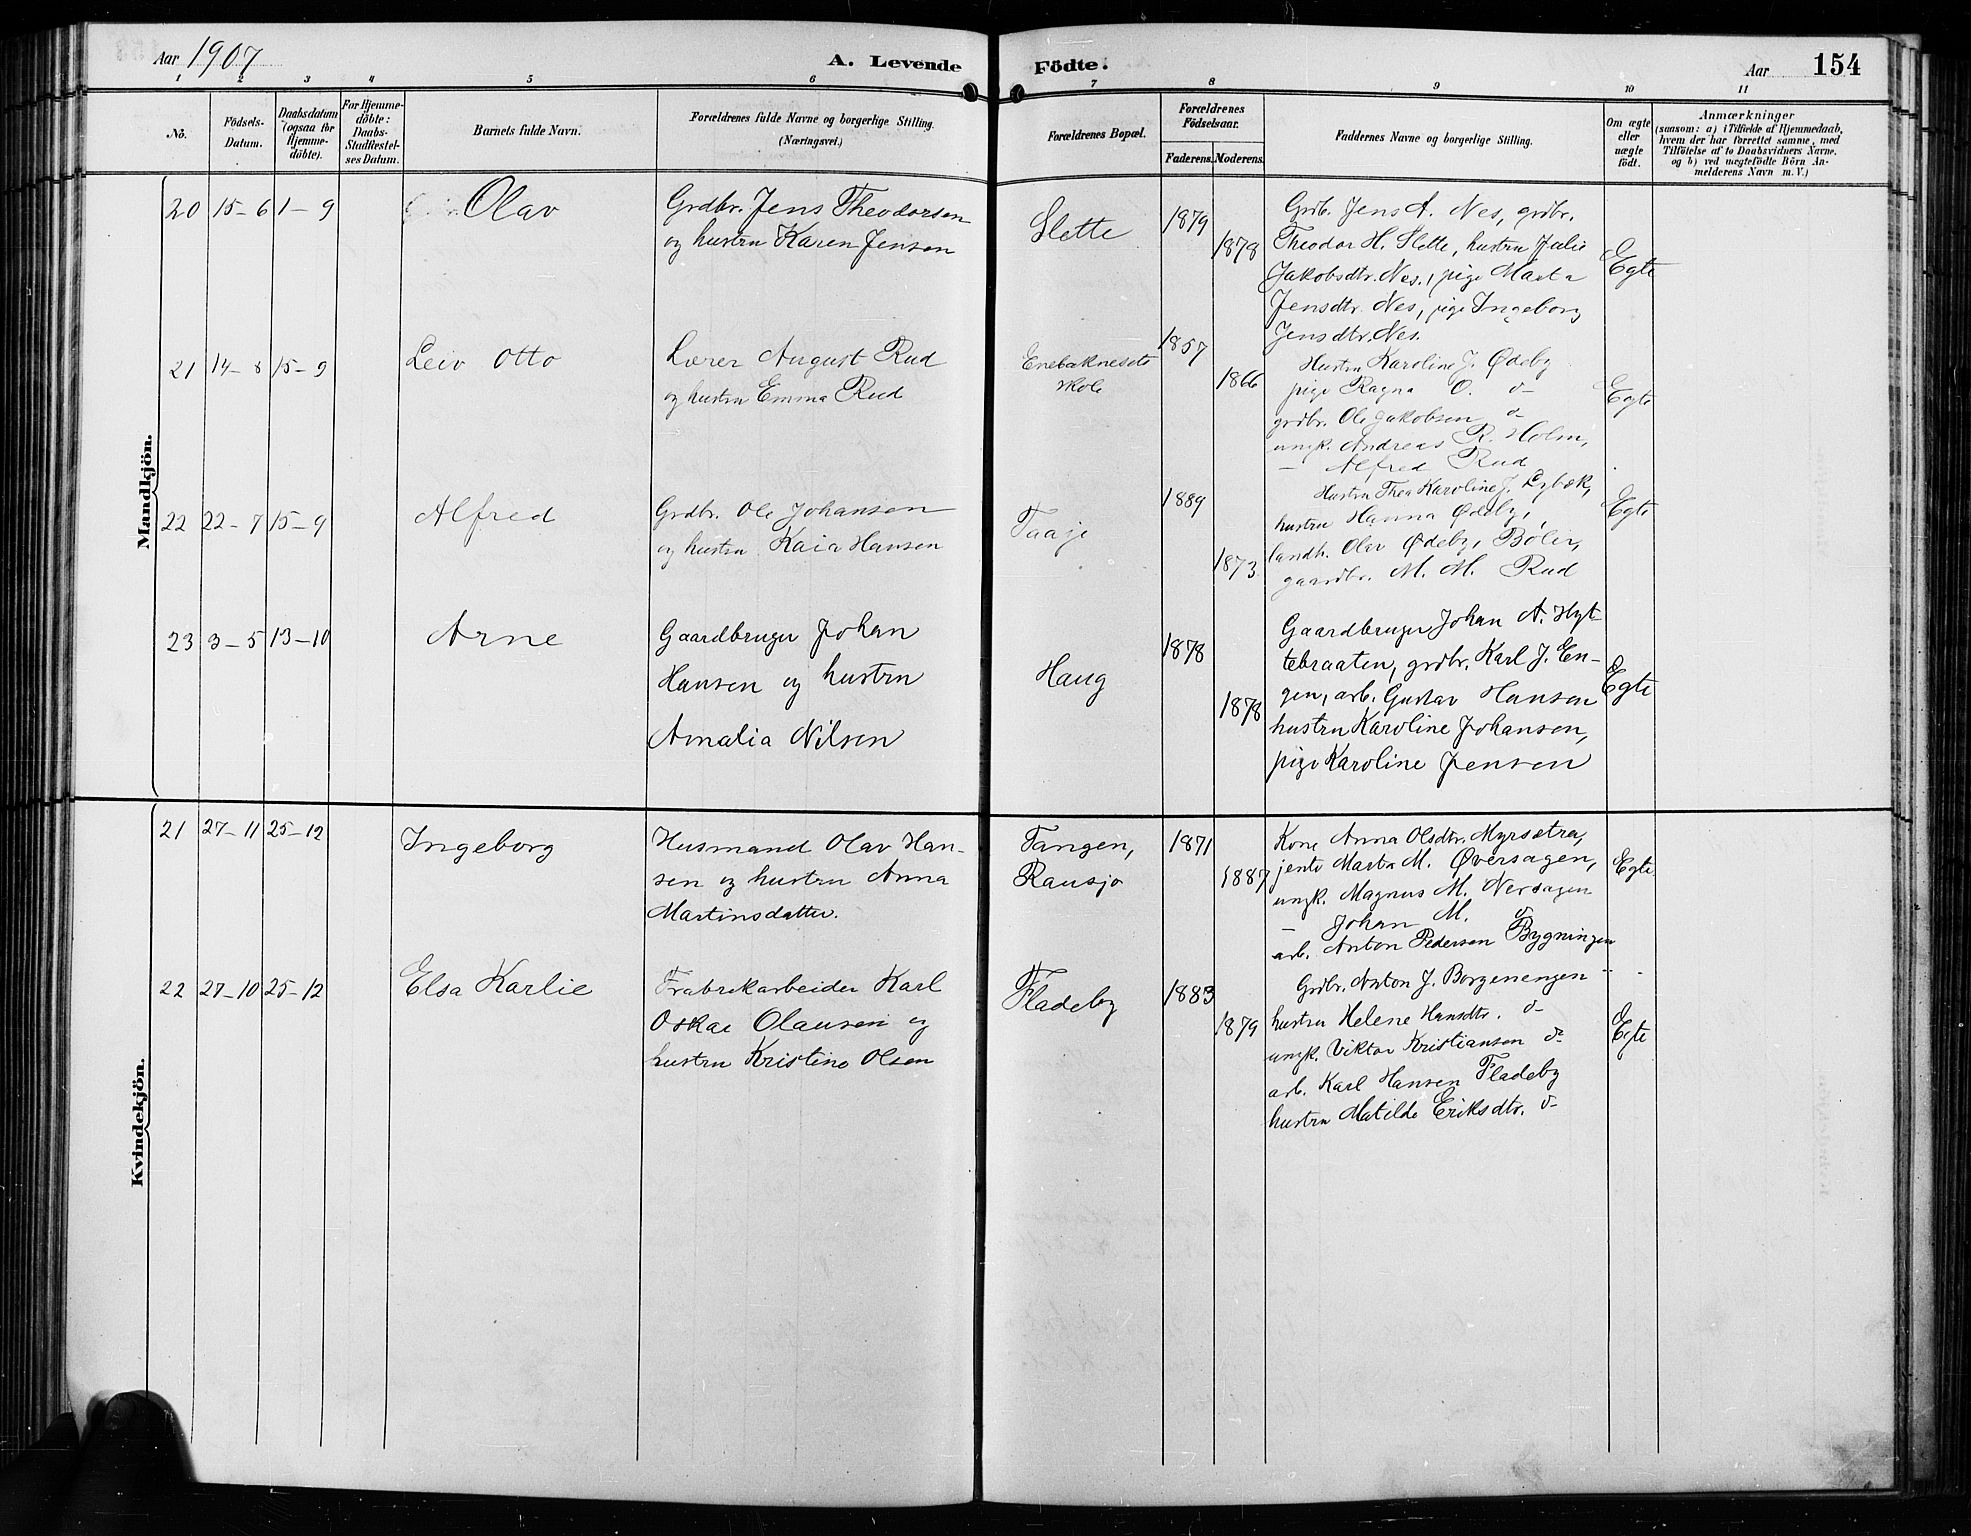 Aar 1907
A. Levende Födte.
Aar 154
1 2 3 4 5 6 7 8 9 10 11
No.
Födsels-
Datum.
Daabsdatum
(ogsaa for
Hjemme-
döbte).
For Hjemme-
döbte:
Daabs-
Stadfæstel-
ses Datum.
Barnets fulde Navn.
Forældrenes fulde Navne og borgerlige Stilling.
(Næringsvei.)
Forældrenes Bopæl.
Forældrenes
Födselsaar.
Faderens. Moderens.
Faddernes Navne og borgerlige Stilling.
Om ægte
eller
uægte
födt.
Anmærkninger
(saasom: a) i Tilfælde af Hjemmedaab,
hvem der har forrettet samme, med
Tilföielse af to Daabsvidners Navne,
og b) ved uægtefödte Börn An-
melderens Navn m. V.)
Mandkjön.
20 15-6 1-9 Olav
Grdbr. Jens Theodorsen
og hustru Karen Jensen
Slette
1879
1878
Grdb. Jens A. Nes, grdbr.
Theodor H. Slette, hustru Julie
Jakobsdtr. Nes, pige Marta
Jensdtr. Nes, pige Ingeborg
Jensdtr. Nes.
Egte
21 14-8 15-9 Leiv Otto
Lærer August Rud
og hustru Emma Rud
Enebaknesets
skole
1857
1866
Hustru Karoline J. Ødeby
pige Ragna O. d-
grdbr. Ole Jakobsen d-
ungk. Andreas R. Holm,
- Alfred Rud
Egte
22 22-7 15-9 Alfred
Grdbr. Ole Johansen
og hustru Kaia Hansen
Taaje
1889
1873
Hustru Thea Karoline J.
hustru Hanna Ødeby,
landh. Olav Ødeby, Böler,
gaardbr. M. M. Rud
Egte
23 3-5 13-10 Arne
Gaardbruger Johan
Hansen og hustru
Amalia Nilsen
Haug
1878
1878
Gaardbruger Johan A. Hyt-
tebraaten, grdbr. Karl J. En-
gen, arb. Gustav Hansen
hustru Karoline Johansen,
pige Karoline Jensen
Egte
Kvindekjön.
21 27-11 25-12 Ingeborg
Husmand Olav Han-
sen og hustru Anna
Martinsdatter.
Tangen,
Rausjø
1871
1887
Kone Anna Olsdtr. Myrsætra,
jente Marta M. Øversagen,
ungk. Magnus M. Nersagen
- Johan M. d-
arb. Anton Pedersen Bygningen
Egte
22 27-10 25-12 Elsa Karlie
Frabrekarbeider Karl
Oskar Olausen og
hustru Kristine Olsen
Fladeby
1883
1879
Grdbr. Anton J. Borgenengen
hustru Helene Hansdtr. d-
ungk. Viktor Kristiansen d-
arb. Karl Hansen Fladeby
hustru Matilde Eriksdtr. d-
Egte